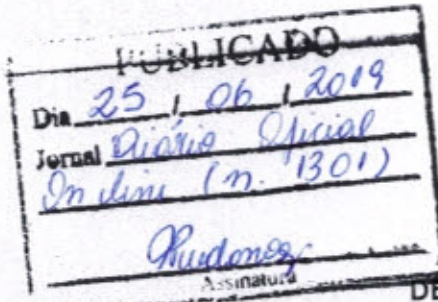 PUBLICADO
Dia 25 / 06 / 2019
Jornal Diário Oficial
On line (n. 1301)
Assinatura